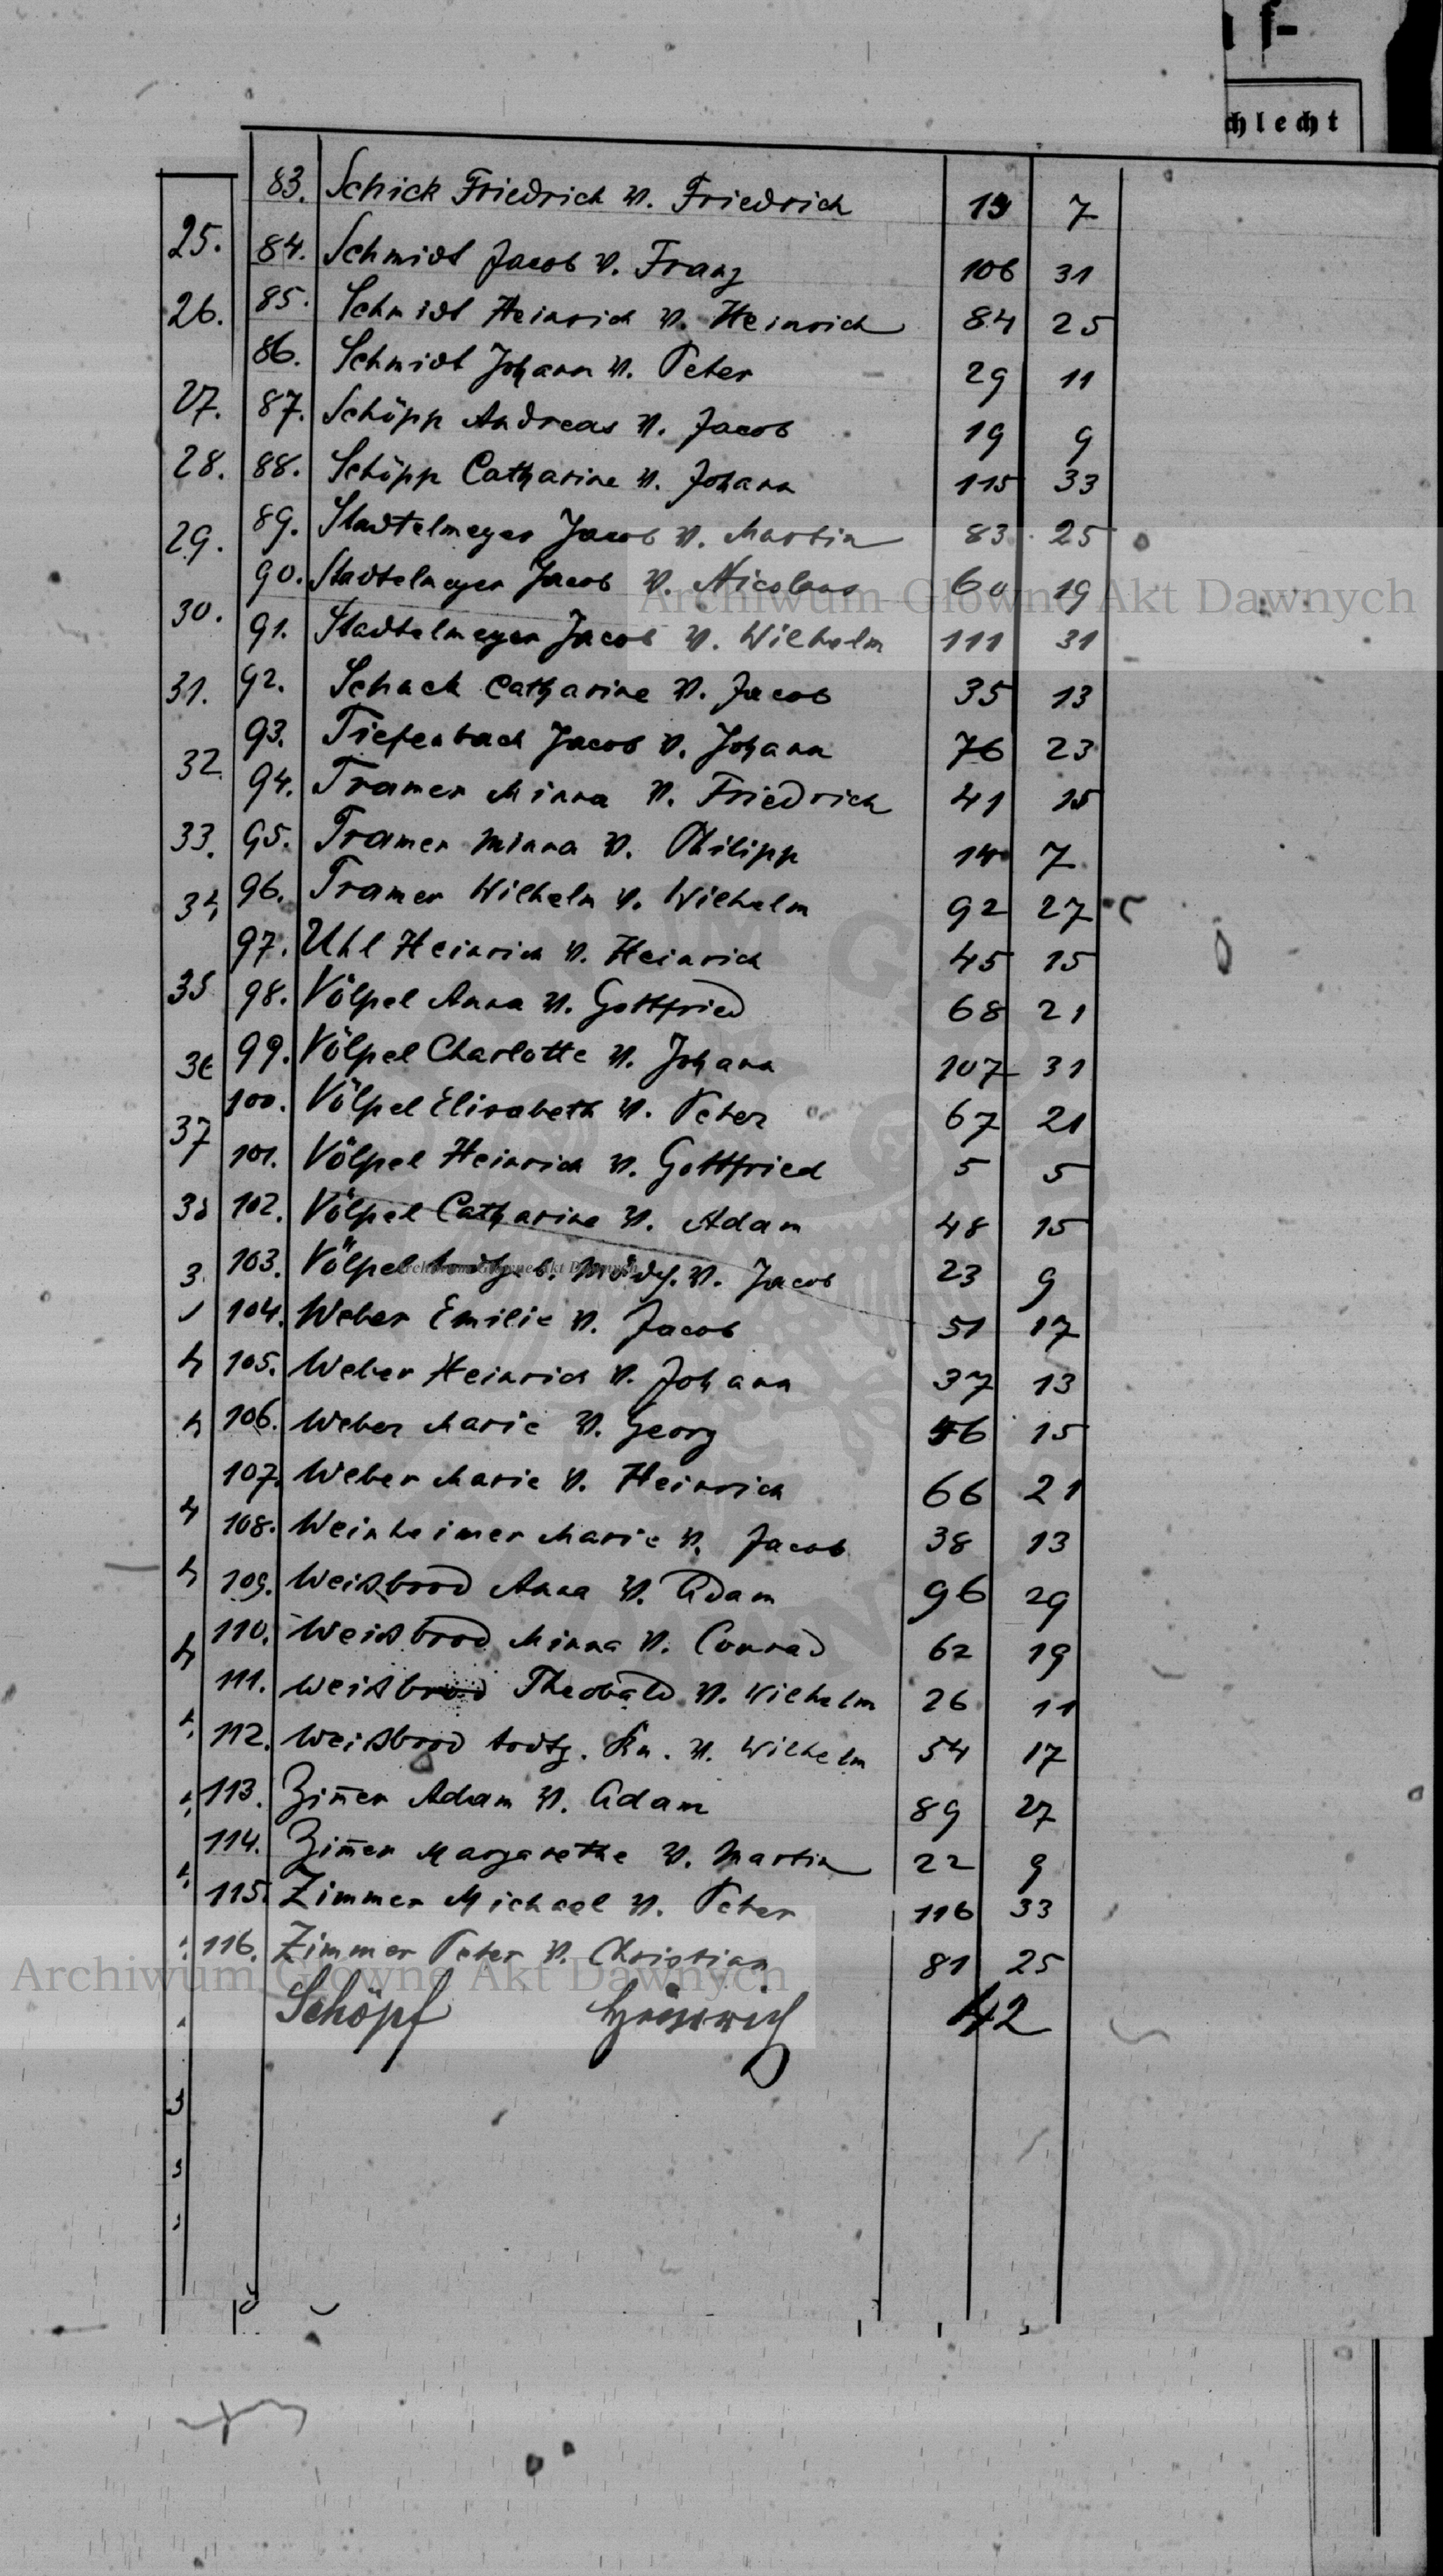 f-
chlecht
83. Schick Friedrich v. Friedrich 13 7
25. 84. Schmidt Jacob v. Franz 106 31
26. 85. Schmidt Heinrich v. Heinrich 84 25
86. Schmidt Johann v. Peter 29 11
27. 87. Schöpp Andreas v. Jacob 19 9
28. 88. Schöpp Catharine v. Johann 115 33
29. 89. Stadtelmeyer Jacob v. Martin 83 25
90. Stadtelmeyer Jacob v. Nicolaus 60 19
Archiwum Główne Akt Dawnych
30. 91. Stadtelmeyer Jacob v. Wilhelm 111 31
31. 92. Schack Catharine v. Jacob 35 13
93. Tiefenbach Jacob v. Johann 76 23
32. 94. Tramer Minna v. Friedrich 41 15
33. 95. Tramer Minna v. Philipp 14 7
34 96. Tramer Wilhelm v. Wilhelm 92 27
97. Uhl Heinrich v. Heinrich 45 15
35 98. Völpel Anna v. Gottfried 68 21
36 99. Völpel Charlotte v. Johann 107 31
100. Völpel Elisabeth v. Peter 67 21
37 101. Völpel Heinrich v. Gottfried 5 5
38 102. Völpel Catharine v. Adam 48 15
3 103. Völpel todtgeb. Mädch. v. Jacob 23 9
Archiwum Główne Akt Dawnych
104. Weber Emilie v. Jacob 51 17
4 105. Weber Heinrich v. Johann 37 13
4 106. Weber Marie v. Georg 46 15
107. Weber Marie v. Heinrich 66 21
4 108. Weinheimer Marie v. Jacob 38 13
4 109. Weisbrod Anna v. Adam 96 29
4 110. Weisbrod Minna v. Conrad 62 19
111. Weisbrod Theobald v. Wilhelm 26 11
112. Weisbrod todtg. Kn. v. Wilhelm 54 17
113. Zim̄er Adam v. Adam 89 27
114. Zim̄er Margarethe v. Martin 22 9
115. Zimmer Michael v. Peter 116 33
116. Zimmer Peter v. Christian 81 25
Archiwum Główne Akt Dawnych
Schöpf Heinrich 42